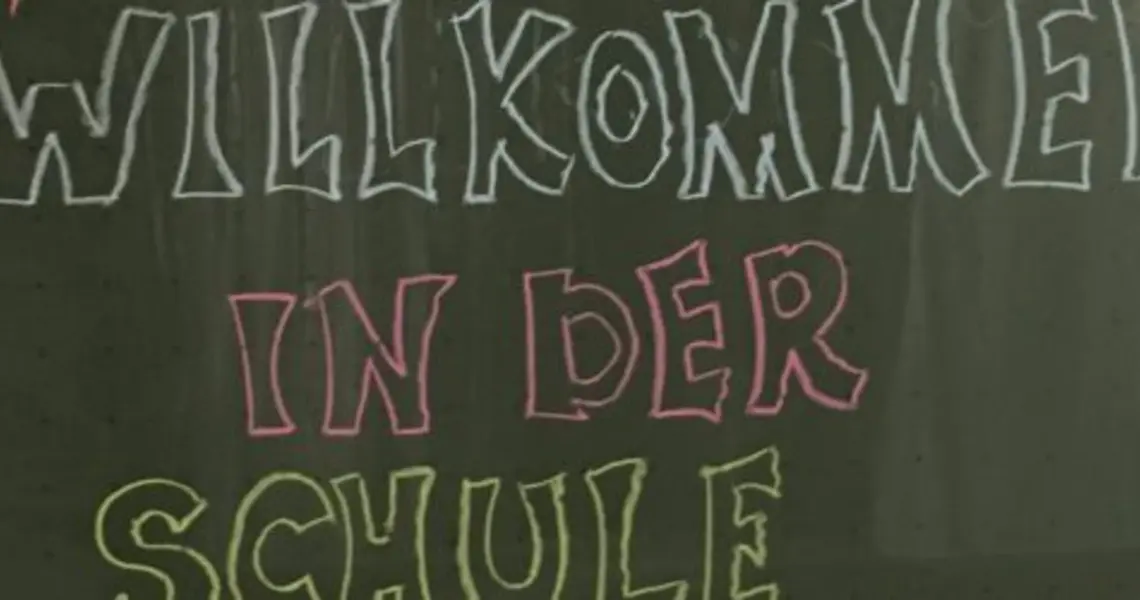 WILLKOMMEN
IN DER
SCHULE